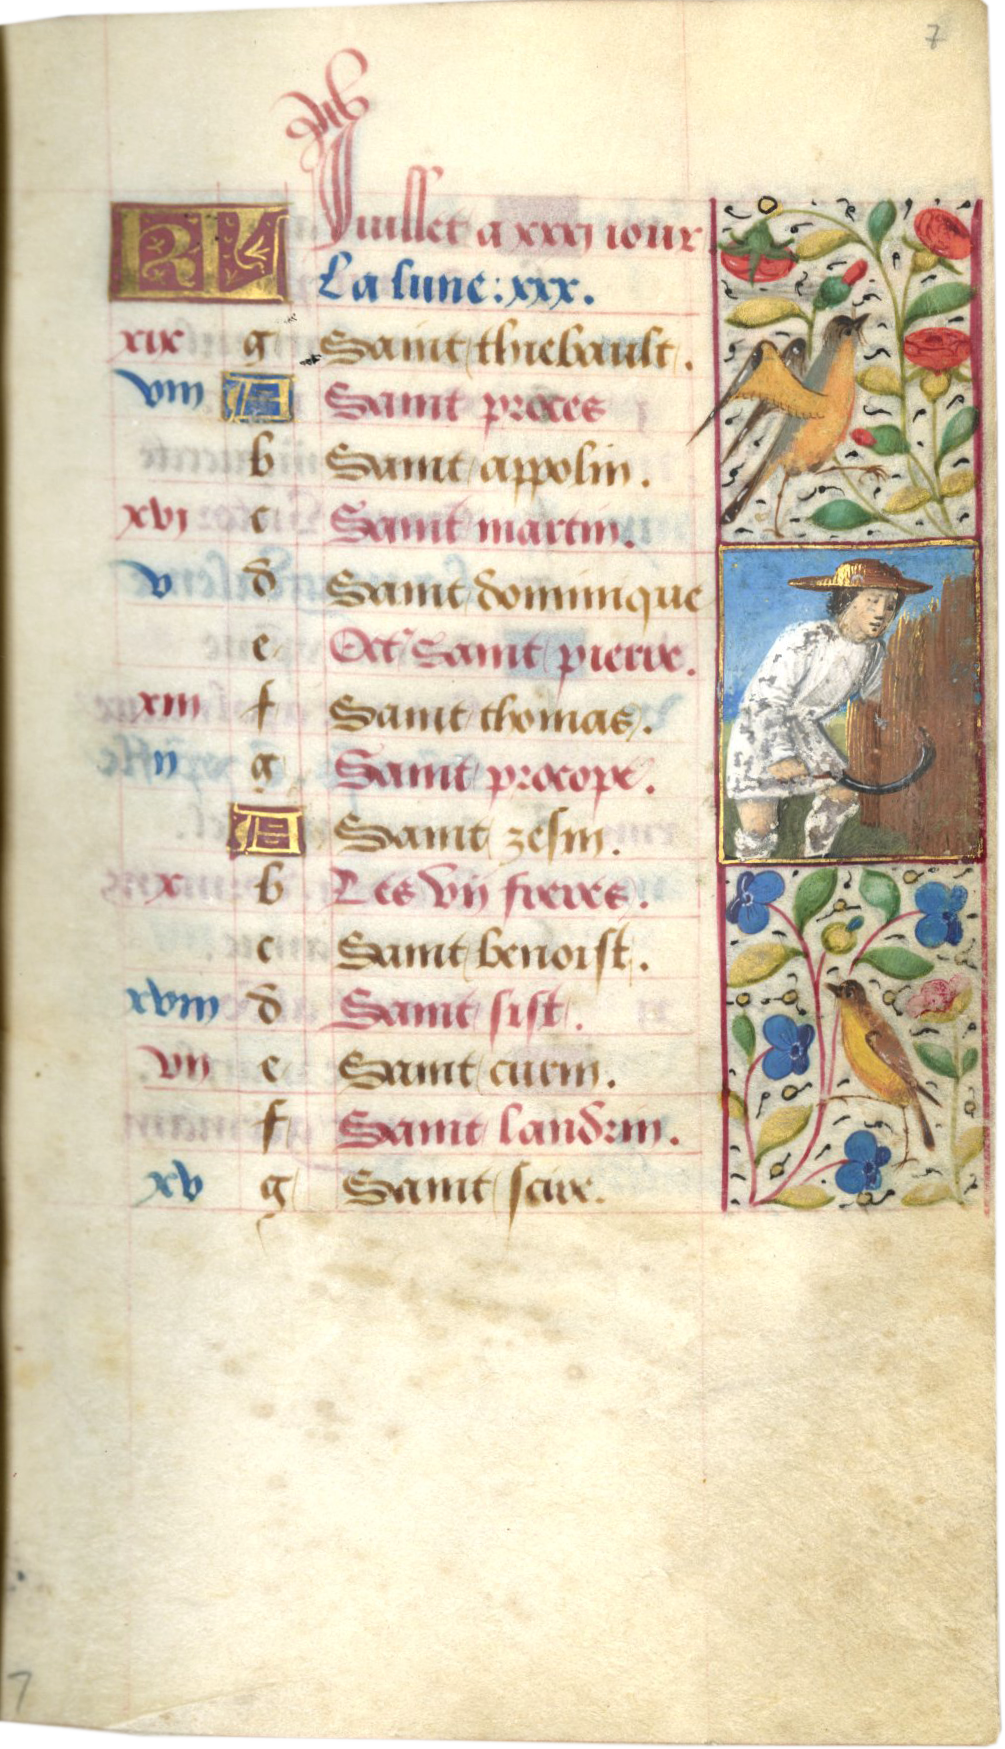 7
KL Juillet a xxxj iour
La lune: xxx.
xix g Saint thiebault.
viii A Saint proces
b Saint appolin.
xvj c Saint martin.
v d Saint dominique
e Oct' Saint pierre.
xiii f Saint thomas.
ii g Saint procope.
A Saint zesin.
x b Les vij freres.
c Saint benoist.
xviii d Saint sist.
vii e Saint
f Saint landrin.
xv g Saint
7